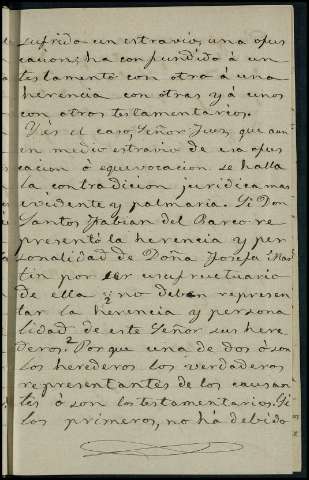 sufrido un estravio, una ofus
cacion; ha confundido á un
testamento con otro á una
herencia con otras y á unos
con otros testamentarios.
Y es el caso, Señor Juez, que aun
en medio estravio de esa ofus
cacion ó equivocacion se halla
la contradicion juridica mas
evidente y palmaria. Si Don
Santos Fabian del Barco re
presentó la herencia y per
sonalidad de Doña Josefa Mar
tin por ser usufructuario
de ella ¿no deben represen
tar la herencia y persona
lidad de este Señor sus here
deros? Porque una de dos ó son
los herederos los verdaderos
representantes de los causan
tes ó son los testamentarios. Si
los primeros, no há debido